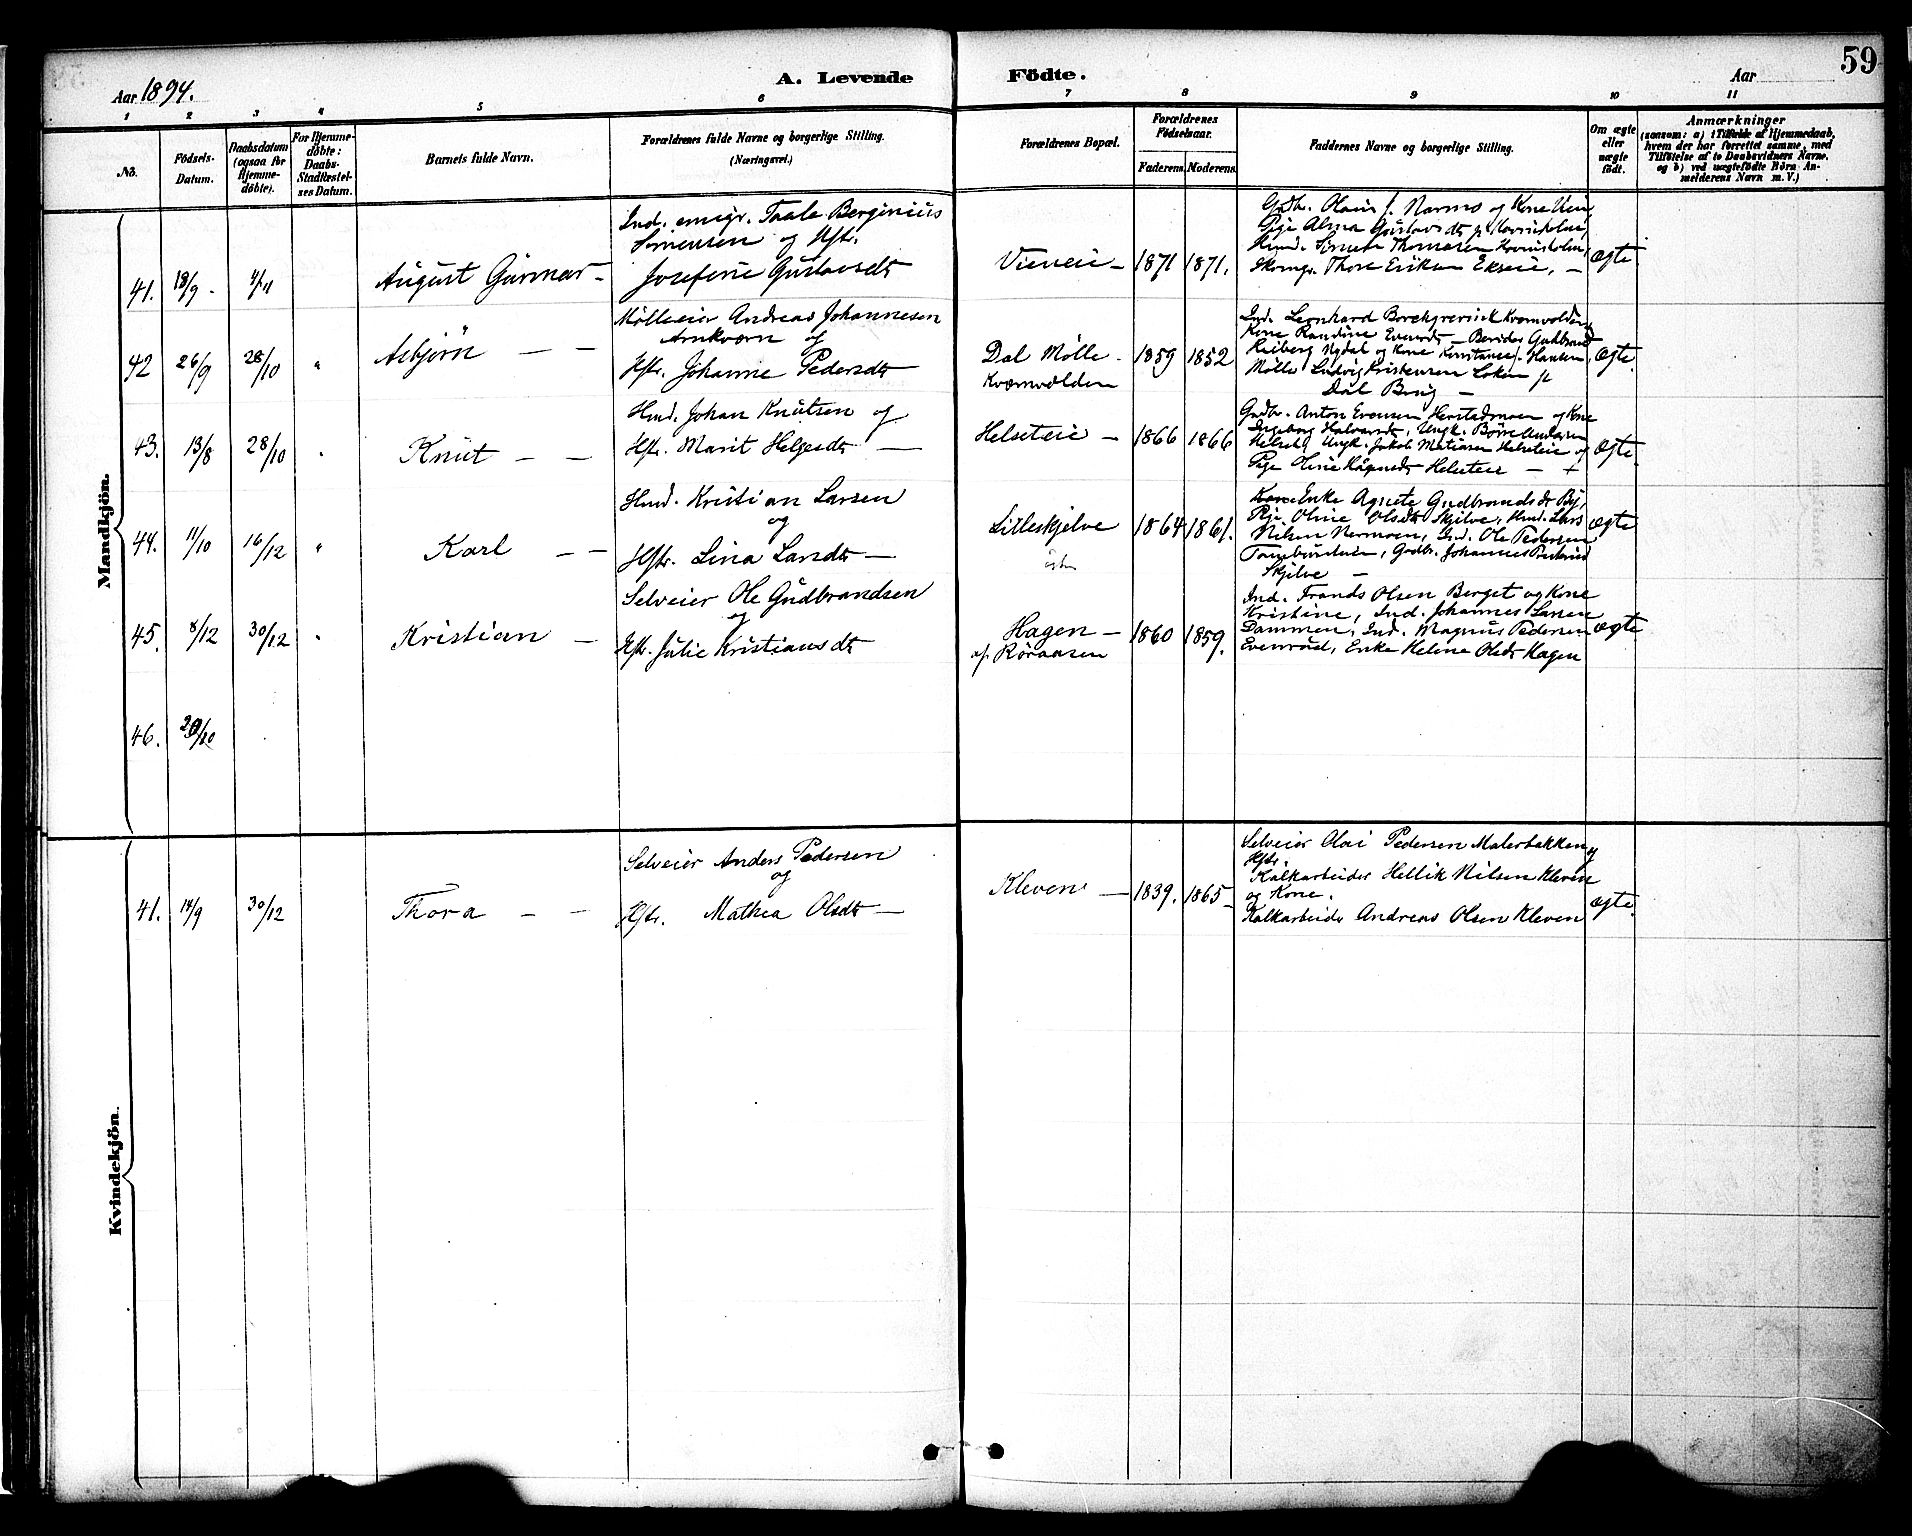 59
Aar 1894.
A. Levende Födte.
Aar
1 2 3 4 5 6 7 8 9 10 11
No.
Födsels-
Datum.
Daabsdatum
(ogsaa för
Hjemme-
döbte).
For Hjemme-
döbte:
Daabs-
Stadfæstel-
ses Datum.
Barnets fulde Navn.
Forældrenes fulde Navne og borgerlige Stilling.
(Næringsvei.)
Forældrenes Bopæl.
Forældrenes
Födselsaar.
Faderens. Moderens.
Faddernes Navne og borgerlige Stilling.
Om ægte
eller
uægte
födt.
Anmærkninger
(saasom: a) i Tilfælde af Hjemmedaab,
hvem der har forrettet samme, med
Tilföielse af to Daabsvidners Navne,
og b) ved uægtefödte Börn An-
melderens Navn m. V.)
Mandkjön.
41. 18/9 - 4/11
August Gunnar -
Ind. emigr. Taale Berginius
Sörensen og Hstr.
Josefine Gustavsdt
Vieneie - 1871 1871.
Gndbr. Olaus Narmo og Kone
Pige Alma Gustavsdt
Thomasen
Thore Eriksen Ekseie, -
Ægte
42 26/9 28/10 "
Asbjörn - -
Mölleeier Andreas Johannesen
Arnkværn og
Hstr. Johanne Pedersdt
Dal Mölle -
Kværnvolden
1859 1852
Ind. Leonhard Borchgrevink Kværnvolden
Kone Randine Evensdt - Gudbrand
Nydal og Kone Konstanse Hansen,
Mölle Ludvig Kristensen Loken p
Dal Brug -
Ægte.
43. 13/8 28/10 "
Knut - -
Hmd. Johan Knutsen og
Hstr. Marit Helgesdt -
Helseteie - 1866 1866
Gndbr. Anton Evensen og Kone
Ingeborg Halvorsdt, Ungk. Börre Andersen
Ungk. Jakob Matiasen Helseteie og
Pige Oline Helseteie - +
Ægte.
44. 11/10 16/12 "
Karl - -
Hmd. Kristian Larsen
og
Hstr. Lina Larsdt -
Lilleskjelve
östre
1864 1861.
Enke Agnete Gudbrandsdt By,
Pige Oline Olsdt Skjelve, Hmd. Lars
Nilsen Nermoen, Ind. Ole Pedersen
Gndbr. Johannes
Skjelve -
Ægte
45. 8/12 30/12 "
Kristian -
Selveier Ole Gudbrandsen
og
Hstr. Julie Kristiansdt
Hagen -
af Röraasen
1860 1859.
Ind. Frands Olsen Berget og Kone
Kristine, Ind. Johannes Larsen
Dammen, Ind. Magnus Pedersen
Evenrud, Enke Helene Olsdt Hagen
Ægte
46. 29/10
Kvindekjön.
41. 14/9 30/12
Thora - -
Selveier Anders Pedersen
og
Hstr. Mathea Olsdt -
Kleven - 1839. 1865 -
Selveier Olai Pedersen Malerbakken og
Hstr.
Kalkarbeider Hellik Nilsen Kleven
og Kone.
Kalkarbeider Andreas Olsen Kleven
Ægte.